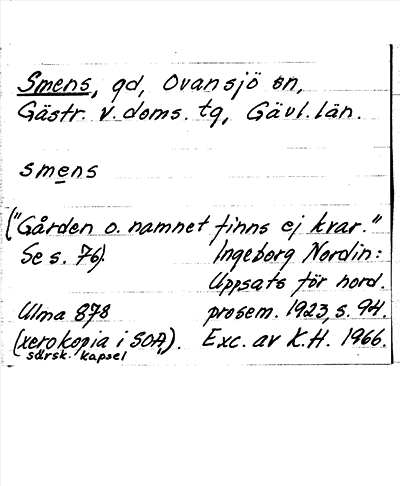 Smens, gd, Ovansjö sn,
Gästr. v. doms. tg, Gävl. län.
smens
("Gården o. namnet finns ej kvar."
Se s. 76).
Ingeborg Nordin:
Uppsats för nord.
Ulma 878
prosem. 1923, s. 94.
(xerokopia i SOA,).
Exc. av K.H. 1966.
särsk. kapsel